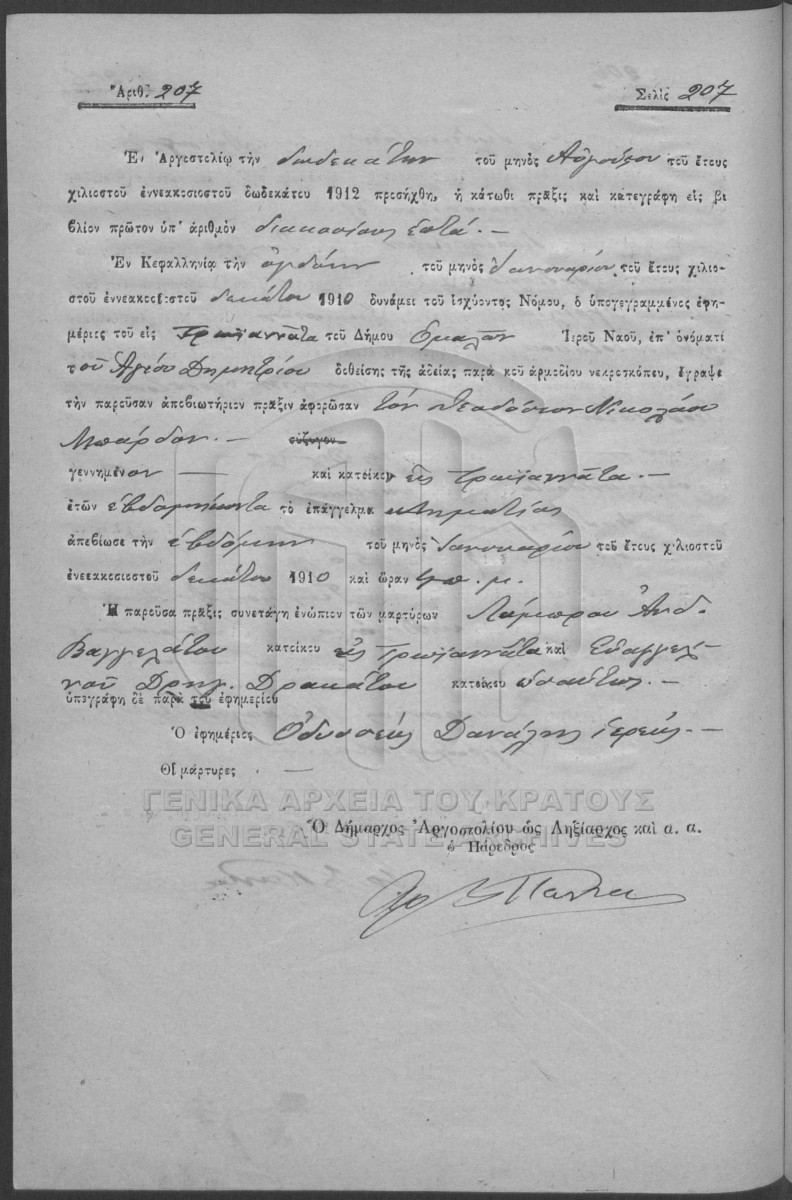 Ἀριθ. 207
Σελὶς 207
Ἐν Ἀργοστολίῳ τὴν δωδεκάτην τοῦ μηνὸς Αὐγούστου τοῦ ἔτους
χιλιοστοῦ ἐννεακοσιοστοῦ δωδεκάτου 1912 προσήχθη, ἡ κάτωθι πρᾶξις καὶ κατεγράφη εἰς βι
βλίον πρῶτον ὑπ' ἀριθμὸν διακοσίους ἑπτά. —
Ἐν Κεφαλληνίᾳ τὴν ὀγδόην τοῦ μηνὸς Ἰανουαρίου τοῦ ἔτους χιλιο-
στοῦ ἐννεακοσιοστοῦ δεκάτου 1910 δυνάμει τοῦ ἰσχύοντος Νόμου, ὁ ὑπογεγραμμένος ἐφη-
μέριος τοῦ εἰς Τρωϊαννάτα τοῦ Δήμου Ὁμαλῶν Ἱεροῦ Ναοῦ, ἐπ' ὀνόματι
τοῦ Ἁγίου Δημητρίου δοθείσης τῆς ἀδείας παρὰ τοῦ ἁρμοδίου νεκροσκόπου, ἔγραψε
τὴν παροῦσαν ἀποβιωτήριον πρᾶξιν ἀφορῶσαν τὸν Θεοδόσιον Νικολάου
Μπάρδον. — σύζυγον
γεννημένον — καὶ κατοίκον εἰς Τρωϊαννάτα. —
ἐτῶν ἑβδομήκοντα τὸ ἐπάγγελμα κτηματίας
ἀπεβίωσε τὴν ἑβδόμην τοῦ μηνὸς Ἰανουαρίου τοῦ ἔτους χιλιοστοῦ
ἐνεεακοσιοστοῦ δεκάτου 1910 καὶ ὥραν 4 π. μ.
Ἡ παροῦσα πρᾶξις συνετάγη ἐνώπιον τῶν μαρτύρων Λάμπρου Ἀνδ.
Βαγγελάτου κατοίκου εἰς Τρωϊαννάτα καὶ Εὐαγγελ-
νοῦ Δρακάτου κατοίκου ὡσαύτως. —
ὑπεγράφη δὲ παρὰ τοῦ ἐφημερίου
Ὁ ἐφημέριος Ὀδυσσεὺς Δανάλης ἱερεύς. —
Οἱ μάρτυρες —
ΓΕΝΙΚΑ ΑΡΧΕΙΑ ΤΟΥ ΚΡΑΤΟΥΣ
GENERAL STATE ARCHIVES
Ὁ Δήμαρχος Ἀργοστολίου ὡς Ληξίαρχος καὶ α. α.
ὁ Πάρεδρος